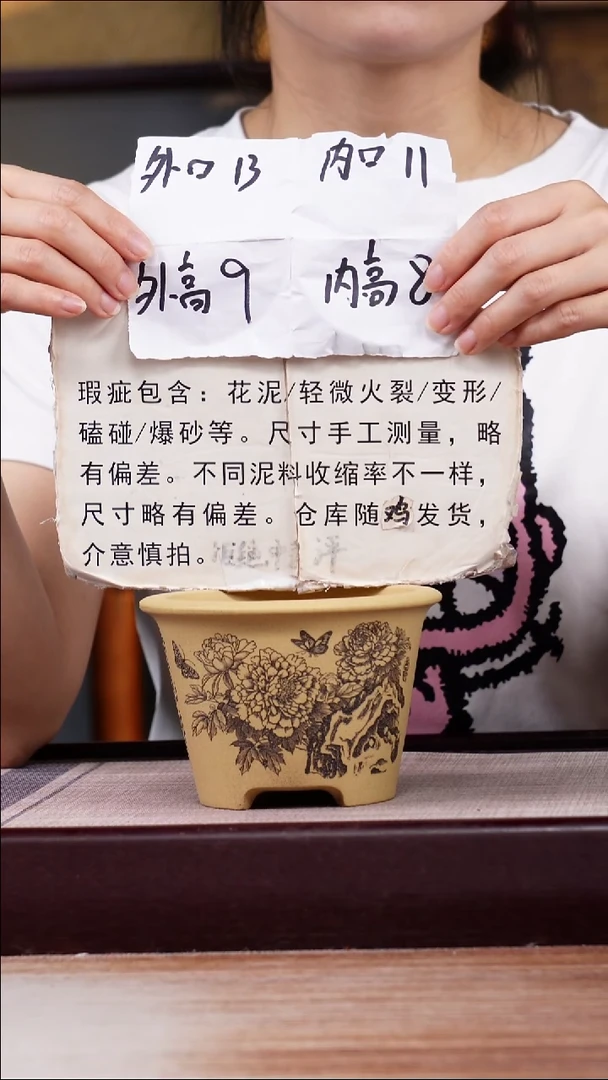 外口13 内口11
外高9 内高8
瑕疵包含：花泥/轻微火裂/变形/
磕碰/爆砂等。尺寸手工测量，略
有偏差。不同泥料收缩率不一样，
尺寸略有偏差。仓库随鸡发货，
介意慎拍。